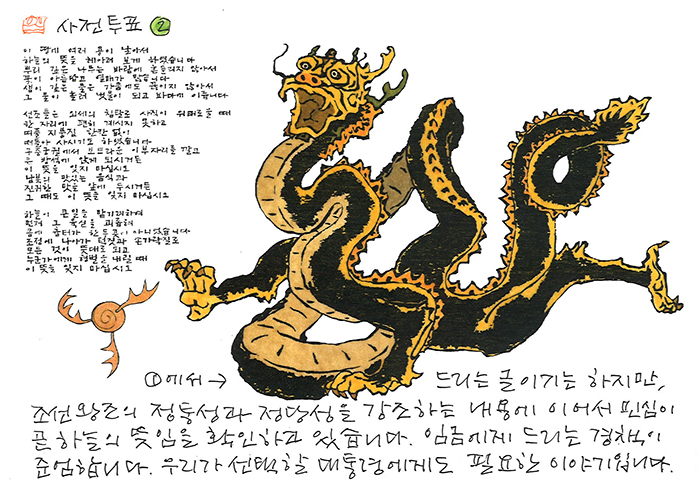 사전투표 2
이 땅에 여러 용이 날아서
하늘의 뜻을 헤아려 보게 하였습니다
뿌리 깊은 나무는 바람에 흔들리지 않아서
꽃이 아름답고 열매가 많습니다
샘이 깊은 물은 가뭄에도 끊이지 않아서
그 물이 흘러 냇물이 되고 바다에 이릅니다
선조들은 외세의 침탈로 사직이 위태로울 때
한 자리에 편히 계시지 못하고
떠돌아 사시기도 하였습니다
구중궁궐에서 보드라운 이부자리를 깔고
은 방석에 앉게 되시거든
이 뜻을 잊지 마십시오
남북의 맛있는 음식과
진귀한 맛을 앞에 두시거든
그 때도 이 뜻을 잊지 마십시오
하늘이 큰일을 맡기려하여
먼저 그 육신을 괴롭혀
몸에 흉터가 한 두곳이 아니었습니다
조정에 나아가 턴짓과 손가락질로
모든 것이 뜻대로 되고
누군가에게 형벌을 내릴 때
이 뜻을 잊지 마십시오
①에서 → 드리는 글이기는 하지만,
조선왕조의 정통성과 정당성을 강조하는 내용에 이어서 민심이
곧 하늘의 뜻임을 확인하고 있습니다. 임금에게 드리는 경책이
준엄합니다. 우리가 선택할 대통령에게도 필요한 이야기입니다.